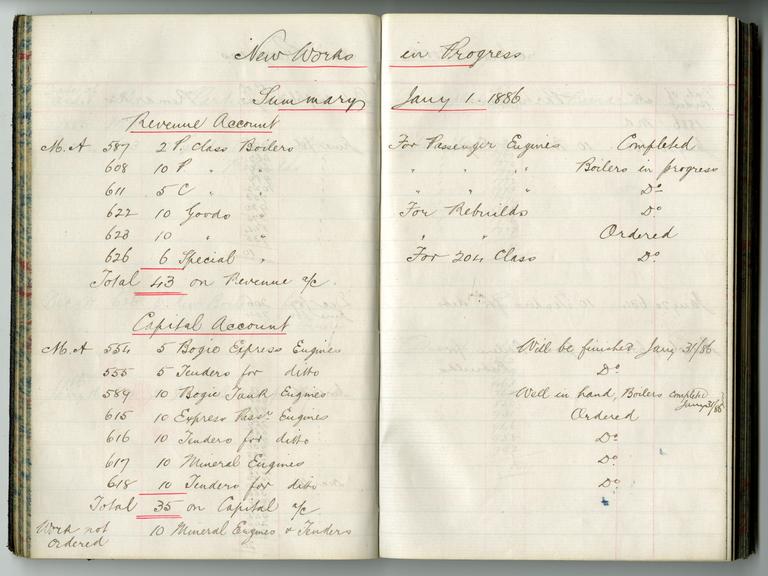 New Works in Progress
Summary Jany 1. 1886
Revenue Account
M.A 587 2 P. Class Boilers For Passenger Engines Completed
608 10 P " " " " " Boilers in progress
611 5 C " " " " " Do
622 10 Goods " For Rebuilds Do
623 10 " " " " Ordered
626 6 Special " For 204 Class Do
Total 43 on Revenue a/c
Capital Account
M.A 554 5 Bogie Express Engines Will be finished Jany 31/86
555 5 Tenders for ditto Do
589 10 Bogie Tank Engines Well in hand, Boilers completed Jany 31/86
615 10 Express Passr Engines Ordered
616 10 Tenders for ditto Do
617 10 Mineral Engines Do
618 10 Tenders for ditto Do
Total 35 on Capital a/c
Work not ordered 10 Mineral Engines & Tenders